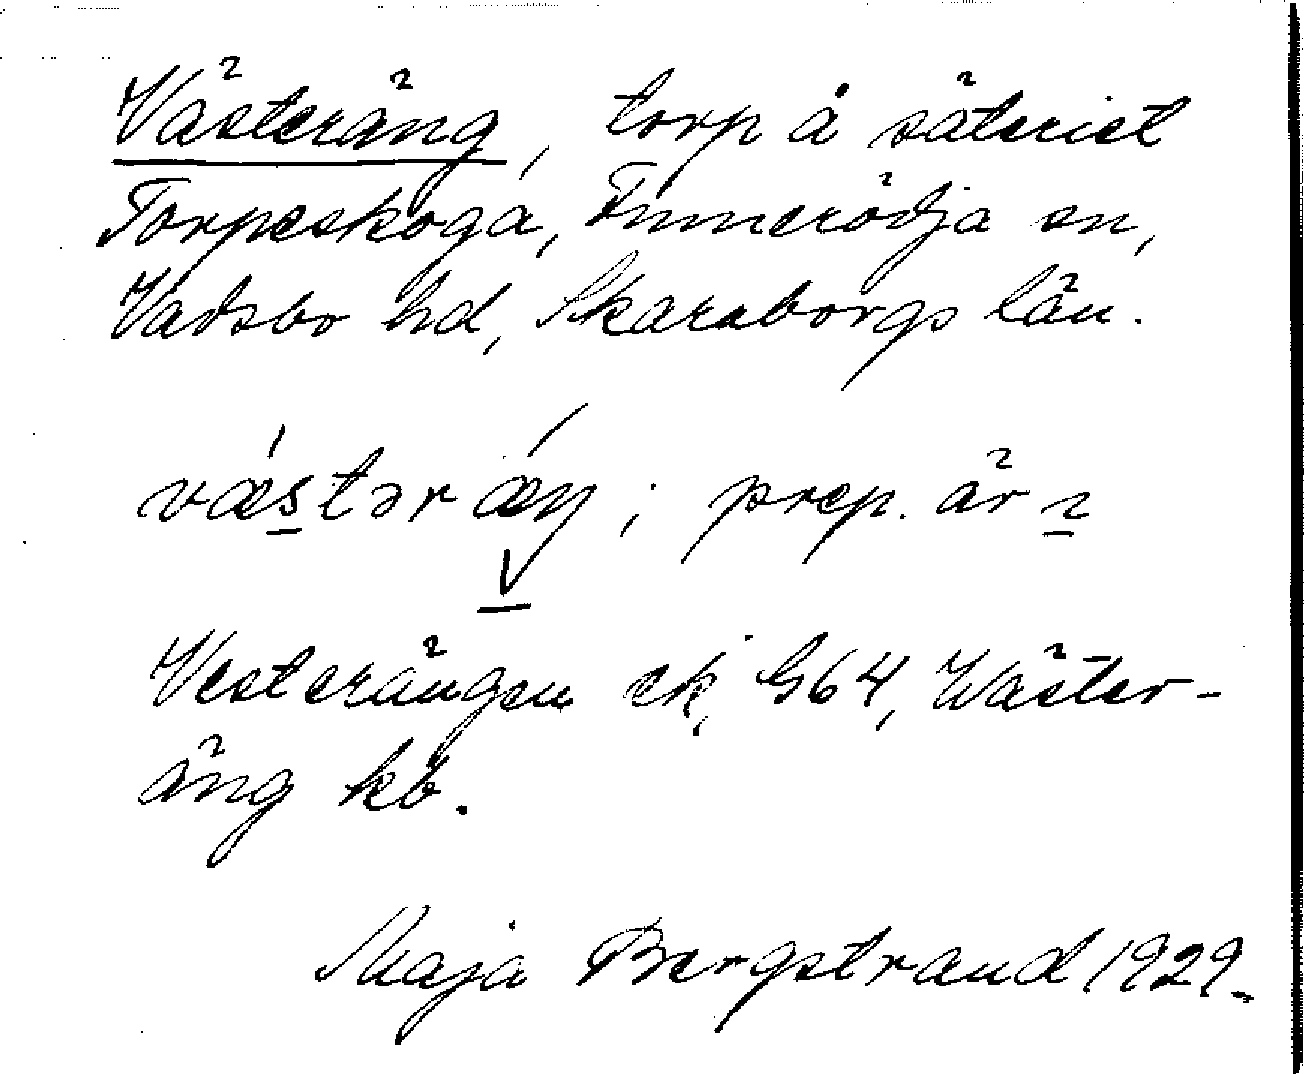 Västeräng, torp å säteriet
Torpeskoga, Finnerödja sn,
Vadsbo hd, Skaraborgs län.
vǽstəræ̀ŋ; prep. är ı
Vesterängen ek, G64, Wäster-
äng kb.
Maja Bergstrand 1929.